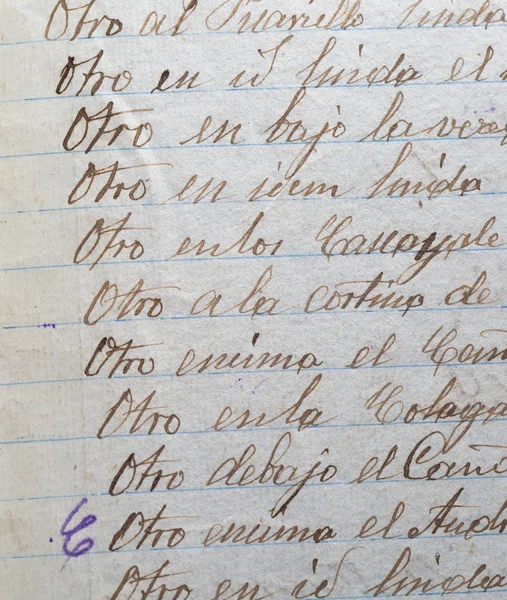 Otro al linda
Otro en id linda el
Otro en bajo la vere
Otro en idem linda
Otro en los
Otro a la cortina de
Otro encima el Cañ
Otro en la Colaga
Otro debajo el Caño
E Otro encima el Andr
Otro en id linda